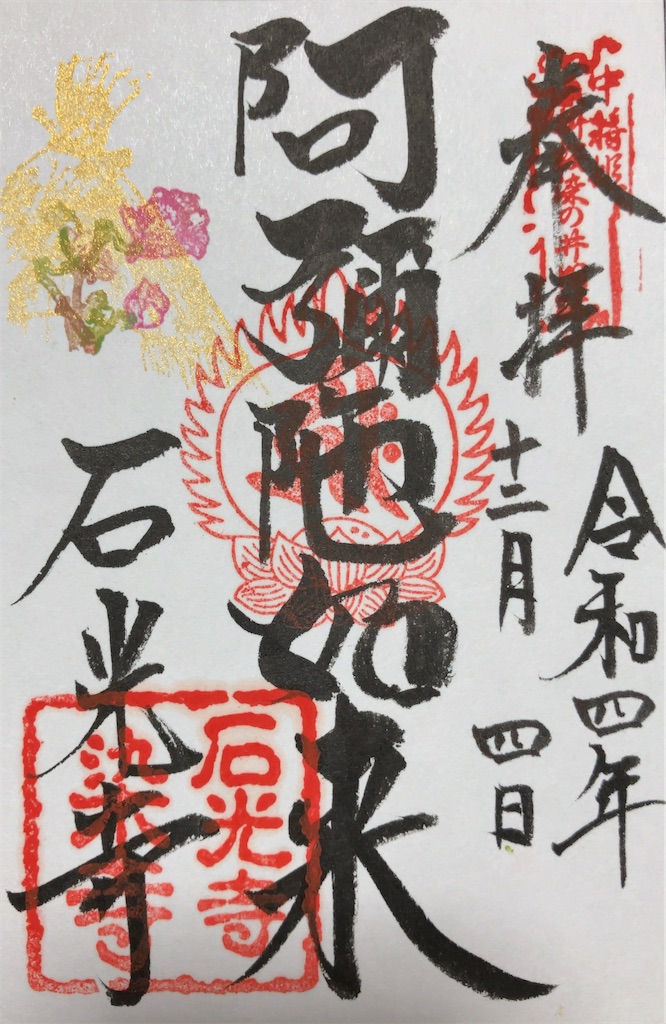 奉拝
中将姫
染の井
令和四年
十二月 四日
阿彌陀如来
石光寺
石光寺
染寺